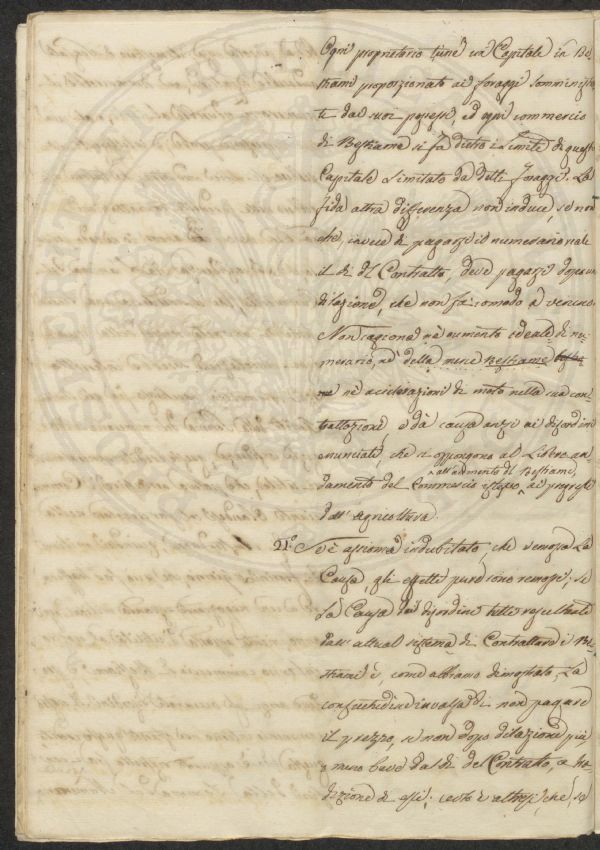 Ogni proprietario tiene un Capitale in Be-
stiami proporzionato ai foraggi somministra-
ti dai suoi possessi, ed ogni commercio
di Bestiame si fà dietro i Limiti di questo
Capitale Limitato da detti foraggi. La
fida altra differenza non induce, se non
che, invece di pagarsi il numerario nel
il dì del Contratto, deve pagarsi dopo una
dilazione, che non fa comodo a veruno.
Non cagiona nè aumento ideale di nu-
merario, nè della merce Bestiame
nè accelerazioni di moto nella sua con-
trattazione e dà causa anzi ai disordini
enunciati, che si oppongono al Libero an-
all'aumento del Bestiame,
damento del Commercio istesso ai progressi
dell'Agricoltura.
21.° Se è assioma indubitato, che remossa La
Causa, gli effetti pure sono remossi; se
La Causa dei disordini tutti resultanti
dall'attual sistema di Contrattare i Be-
stiami è, come abbiamo dimostrato, La
consuetudine invalsa di non pagare
il prezzo, se non dopo dilazione più,
o meno breve dal dì del Contratto, e tra-
dizione di essi; certo è altresì che, se